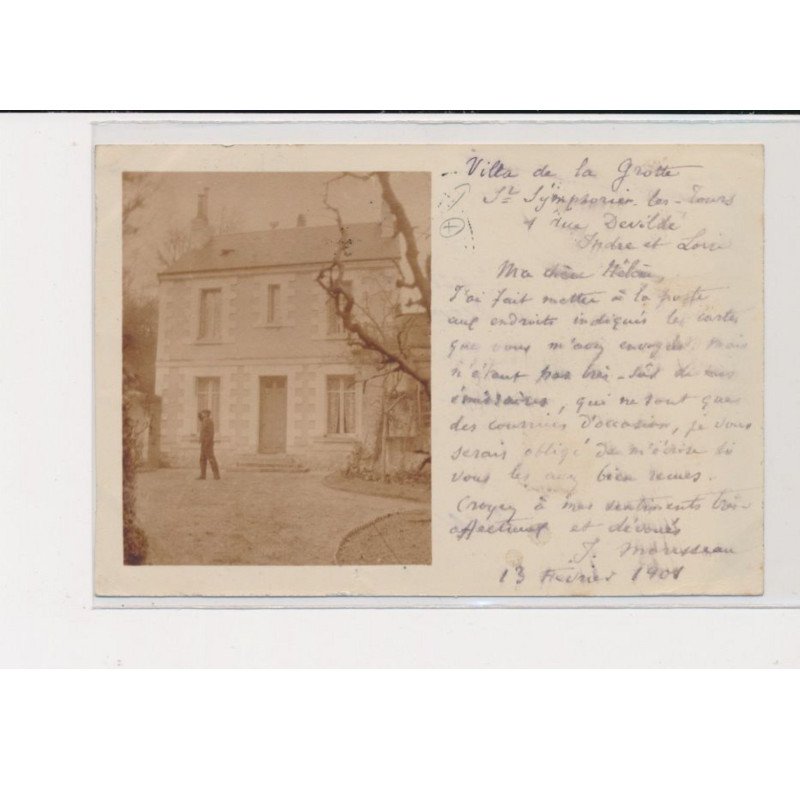 Villa de la Grotte
St Symphorien les-Tours
4 rue Devildé
Indre et Loire
Ma chère Hélène,
J'ai fait mettre à la poste
aux endroits indiqués les cartes
que vous m'avez envoyées. Mais
n'étant pas très-sûr de mes
émissaires, qui ne sont que
des courriers d'occasion, je vous
serais obligé de m'écrire si
vous les avez bien reçues.
Croyez à mes sentiments très-
affectueux et dévoués
J.
13 Février 1901